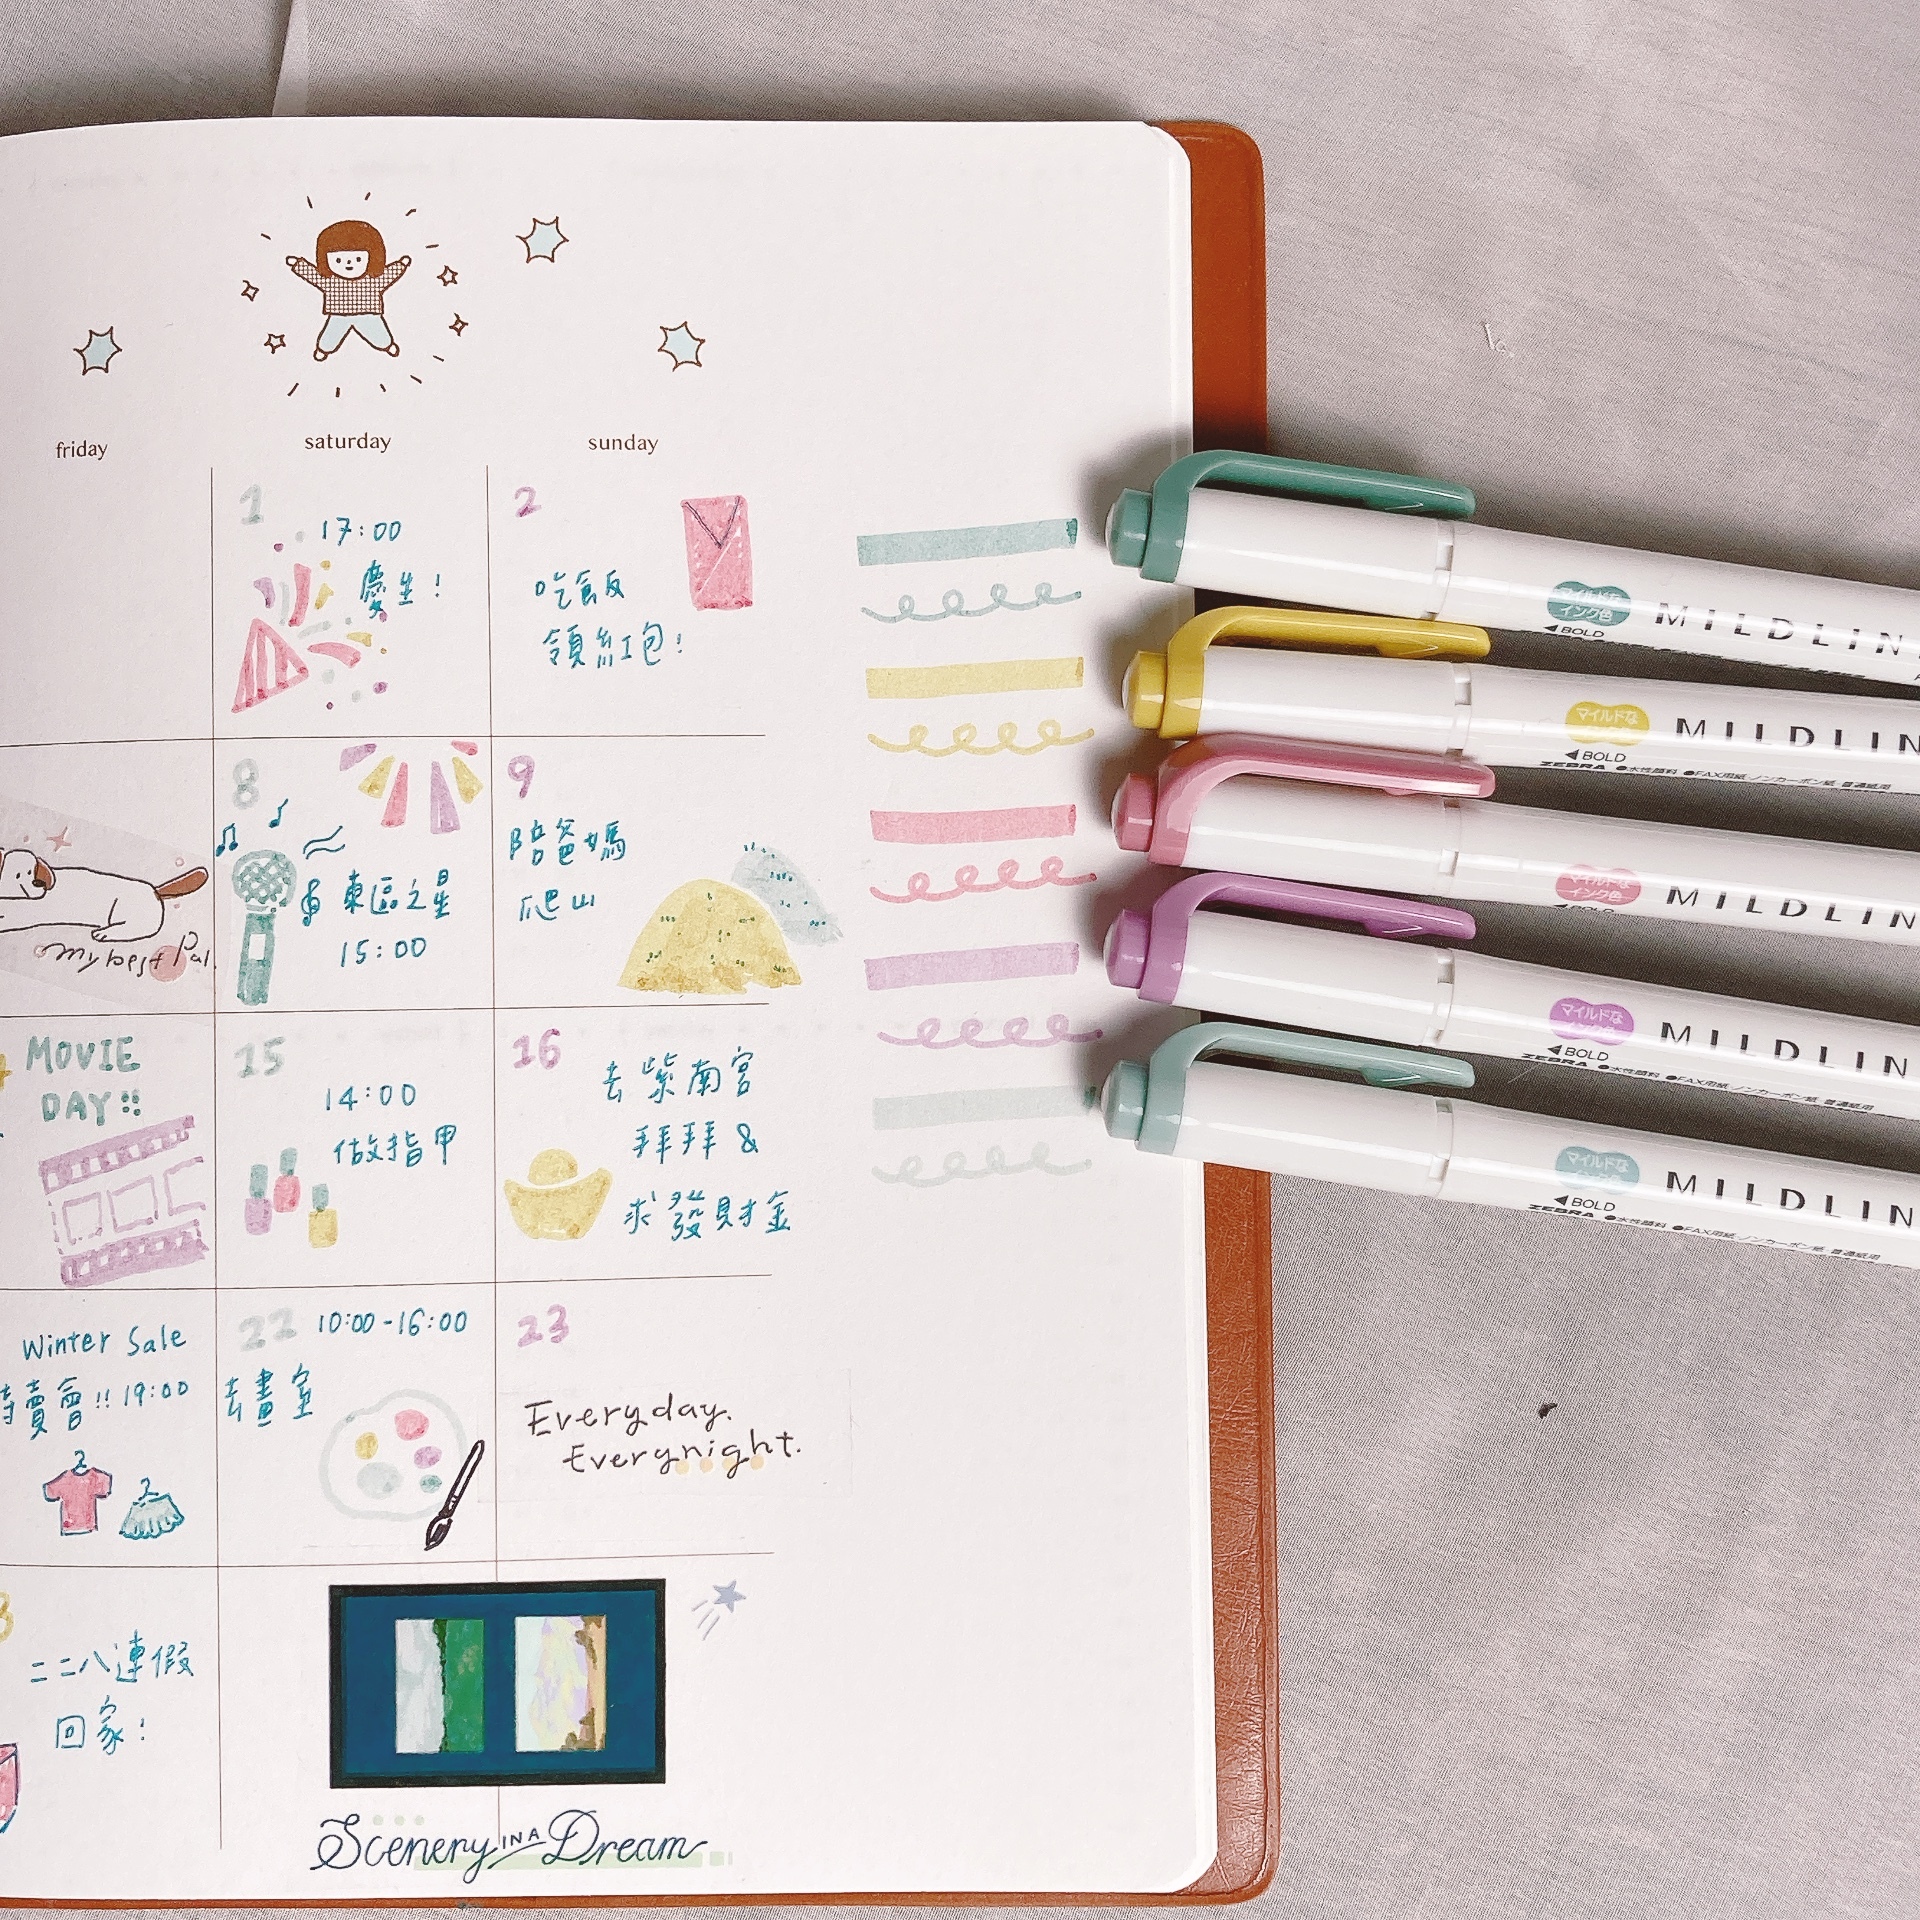 friday
saturday
sunday
1
17:00
慶生!
2
吃飯
領紅包!
my best Pal.
8
東區之星
15:00
9
陪爸媽
爬山
MOVIE
DAY!!
15
14:00
做指甲
16
去紫南宮
拜拜 &
求發財金
Winter Sale
特賣會!! 19:00
22
10:00-16:00
去畫室
23
Everyday.
Everynight.
二二八連假
回家!
Scenery IN A Dream
マイルドな
インク色
◀BOLD
MILDLIN
マイルドな
◀BOLD
MILDLIN
ZEBRA ●水性顔料 ●FAX用紙・ノンカーボン紙・普通紙用
マイルドな
インク色
BOLD
MILDLIN
マイルドな
◀BOLD
MILDLIN
ZEBRA ●水性顔料 ●FAX用紙・ノンカーボン紙・普通紙用
マイルドな
◀BOLD
MILDLIN
ZEBRA ●水性顔料 ●FAX用紙・ノンカーボン紙・普通紙用